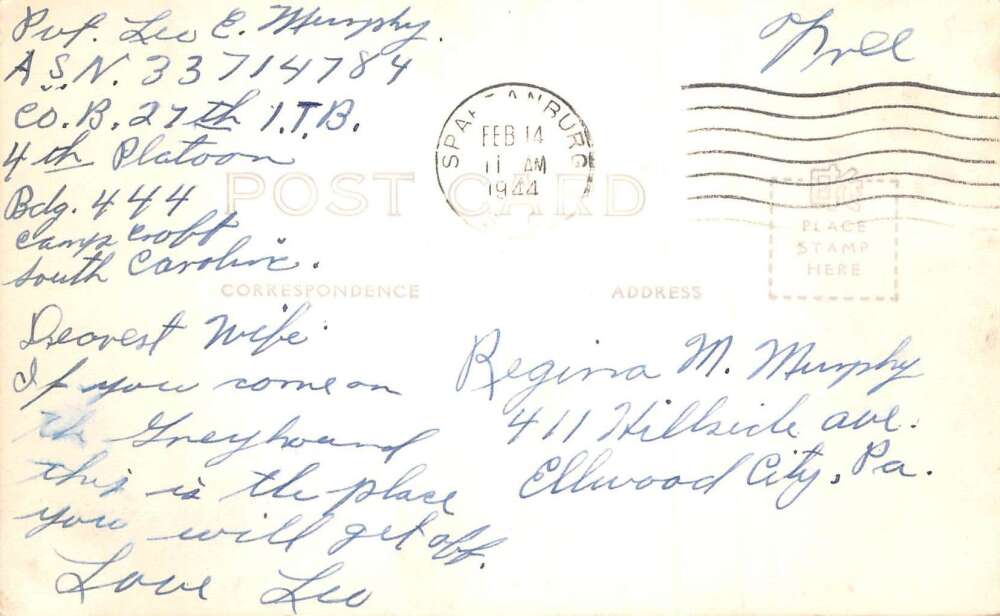 Pvt. Leo E. Murphy.
A.S.N. 33714784
Co. B. 27th I.T.B.
4th Platoon
Bdg. 444
Camp Croft
South Carolina.
Free
SPARTANBURG
FEB 14
11 AM
1944
POST CARD
EKC
PLACE
STAMP
HERE
CORRESPONDENCE
ADDRESS
Dearest Wife
If you come on
the Greyhound
this is the place
you will get off.
Love Leo
Regina M. Murphy
411 Hillside ave.
Ellwood City, Pa.